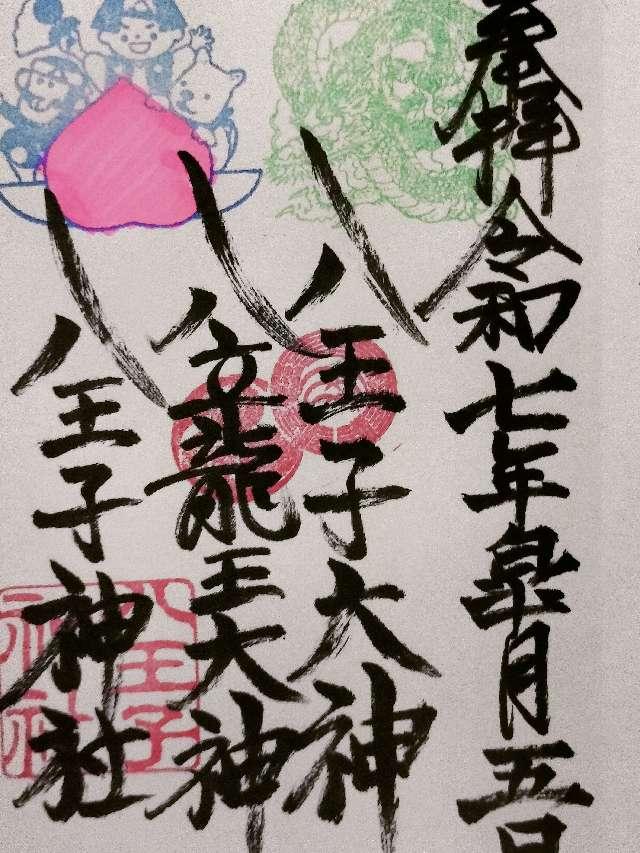 奉拝 令和七年皐月五日
八王子大神
八大龍王大神
八王子神社
八王子
神社